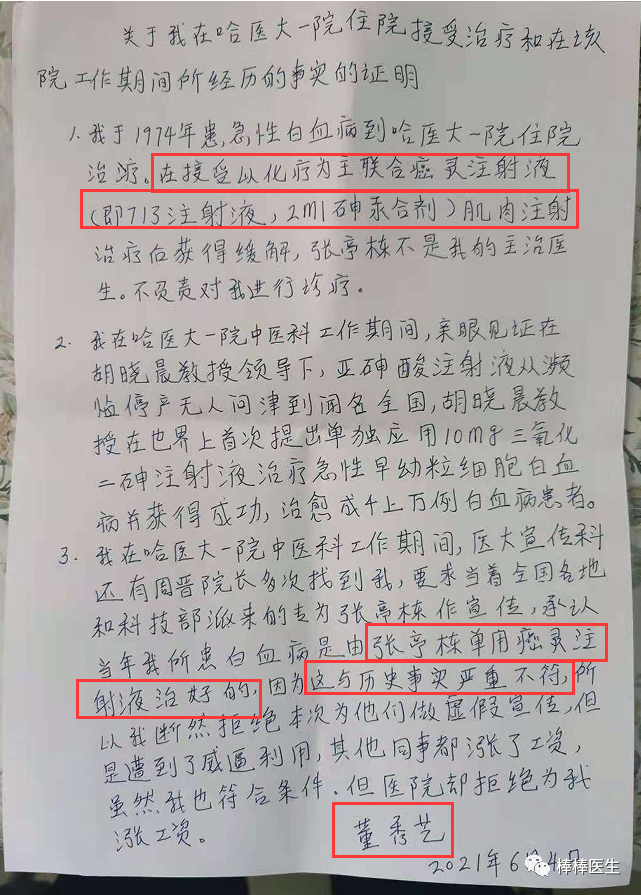 关于我在哈医大一院住院接受治疗和在该
院工作期间所经历的事实的证明
1. 我于1974年患急性白血病到哈医大一院住院
治疗。在接受以化疗为主联合癌灵注射液
（即713注射液，2ml砷汞合剂）肌肉注射
治疗后获得缓解，张亭栋不是我的主治医
生。不负责对我进行诊疗。
2. 我在哈医大一院中医科工作期间，亲眼见证在
胡晓晨教授领导下，亚砷酸注射液从濒
临停产无人问津到闻名全国，胡晓晨教
授在世界上首次提出单独应用10mg三氧化
二砷注射液治疗急性早幼粒细胞白血
病并获得成功，治愈成千上万例白血病患者。
3. 我在哈医大一院中医科工作期间，医大宣传科
还有周晋院长多次找到我，要求当着全国各地
和科技部派来的专为张亭栋作宣传，承认
当年我所患白血病是由张亭栋单用癌灵注
射液治好的，因为这与历史事实严重不符，所
以我断然拒绝本次为他们做虚假宣传，但
是遭到了威逼利用，其他同事都涨了工资，
虽然我也符合条件．但医院却拒绝为我
涨工资。
董秀芝
2021年6月4日
棒棒医生